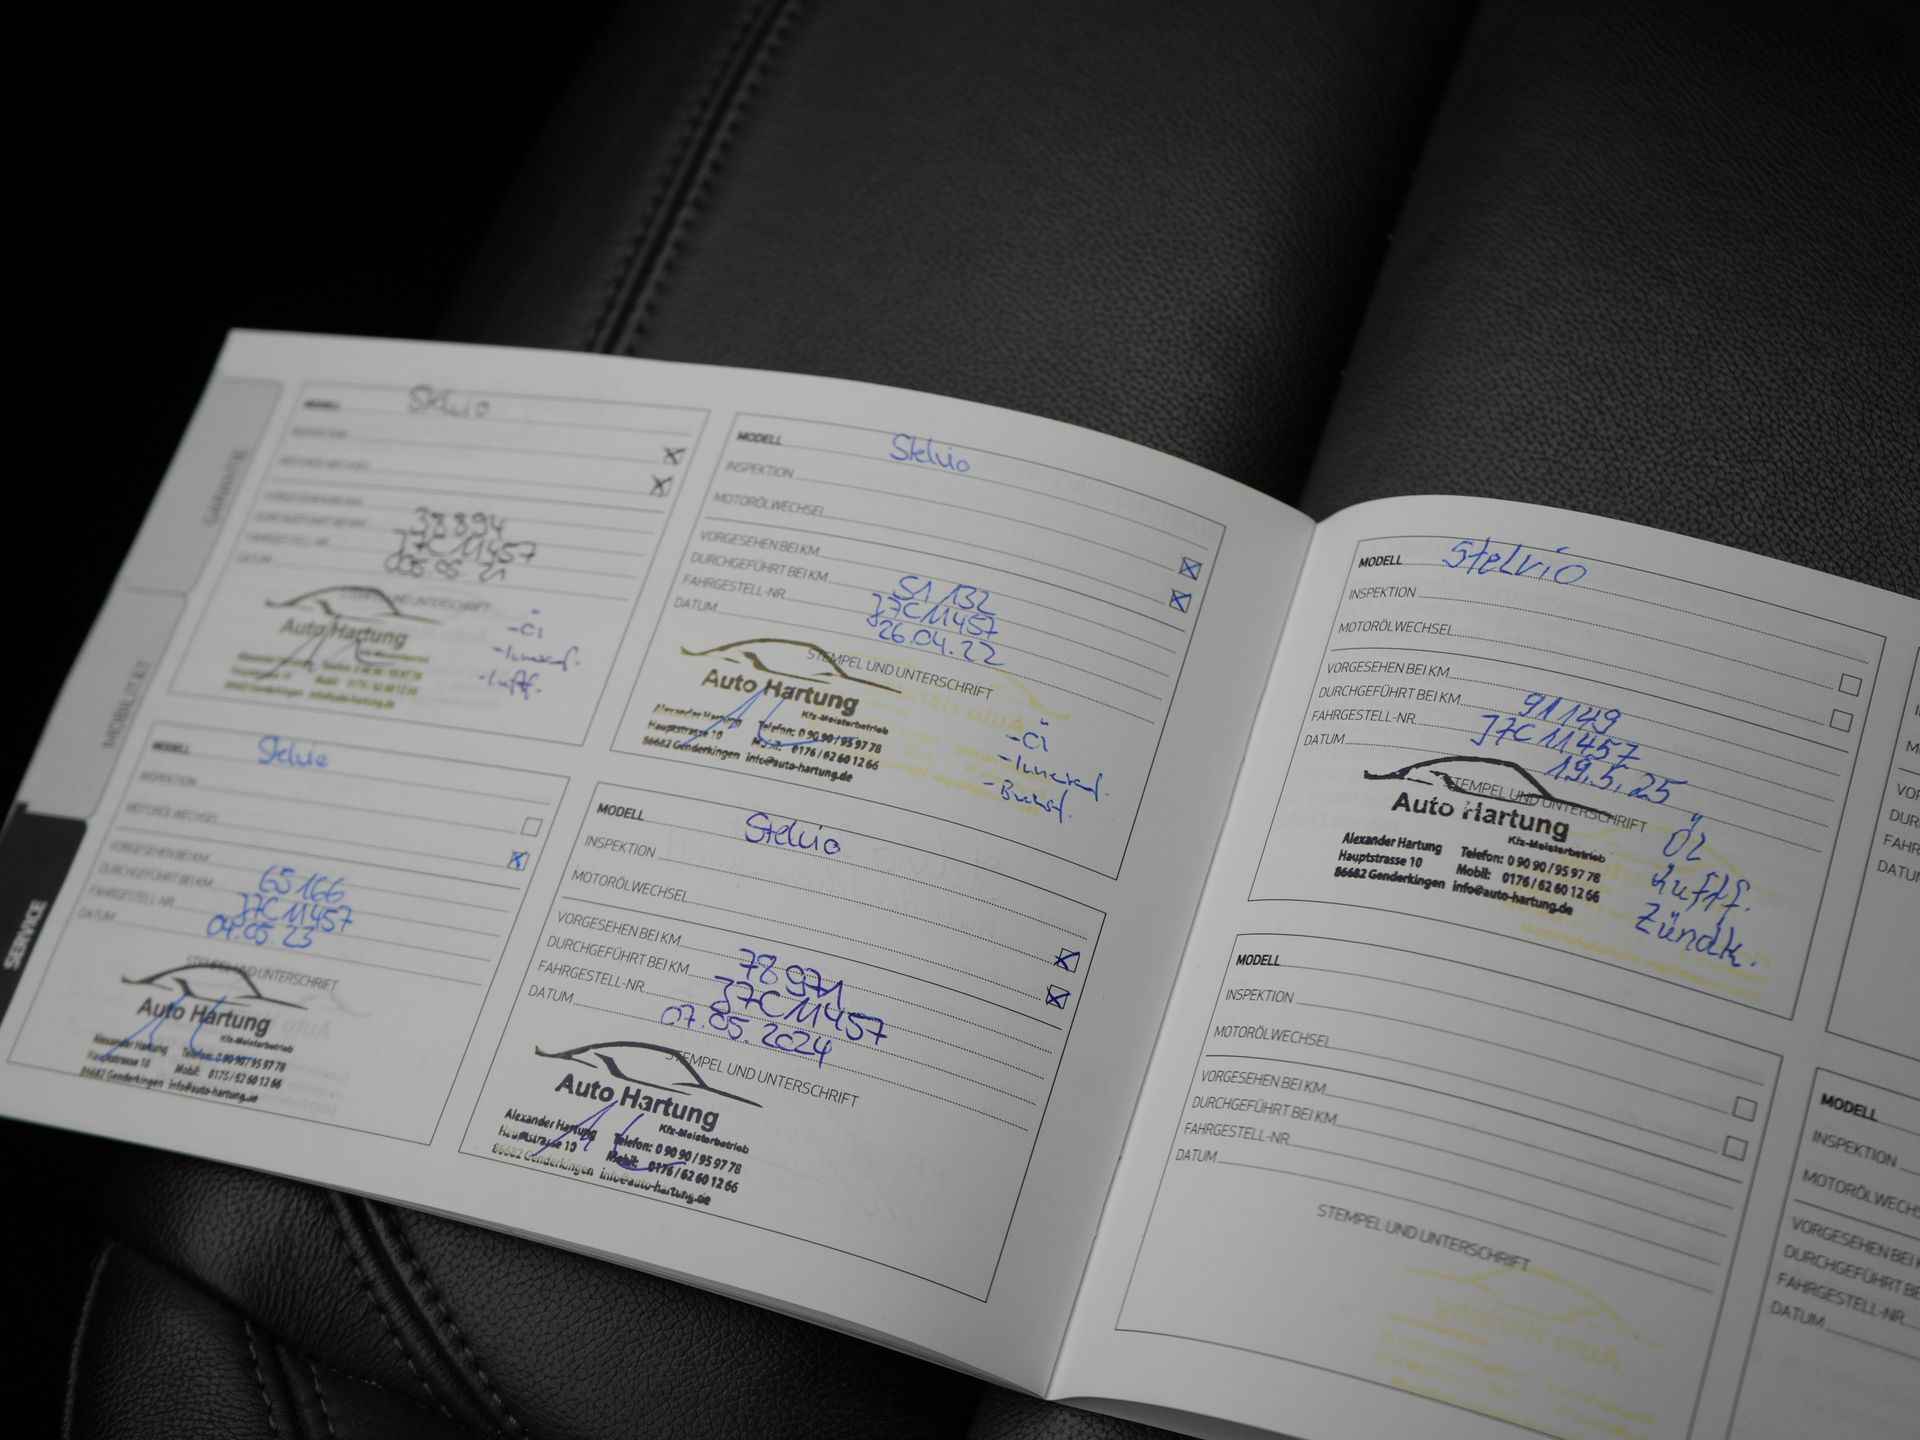 GARANTIE
MOBILITÄT
SERVICE
MODELL Stelvio
INSPEKTION
MOTORÖLWECHSEL
VORGESEHEN BEI KM
DURCHGEFÜHRT BEI KM 38894
FAHRGESTELL-NR. J7C11457
DATUM 05.05.21
STEMPEL UND UNTERSCHRIFT
Auto Hartung
Kfz-Meisterbetrieb
Alexander Hartung Telefon: 0 90 90 / 95 97 78
Hauptstrasse 10 Mobil: 0176 / 62 60 12 66
86682 Genderkingen info@auto-hartung.de
- Öl
- Innenf.
- Luftf.
MODELL Stelvio
INSPEKTION
MOTORÖLWECHSEL
VORGESEHEN BEI KM
DURCHGEFÜHRT BEI KM 51 132
FAHRGESTELL-NR. J7C11457
DATUM 26.04.22
STEMPEL UND UNTERSCHRIFT
Auto Hartung
Kfz-Meisterbetrieb
Alexander Hartung Telefon: 0 90 90 / 95 97 78
Hauptstrasse 10 Mobil: 0176 / 62 60 12 66
86682 Genderkingen info@auto-hartung.de
- Öl
- Innenf.
MODELL Stelvio
INSPEKTION
MOTORÖLWECHSEL
VORGESEHEN BEI KM
DURCHGEFÜHRT BEI KM 65166
FAHRGESTELL-NR. J7C11457
DATUM 04.05.23
STEMPEL UND UNTERSCHRIFT
Auto Hartung
Kfz-Meisterbetrieb
Alexander Hartung Telefon: 0 90 90 / 95 97 78
Hauptstrasse 10 Mobil: 0176 / 62 60 12 66
86682 Genderkingen info@auto-hartung.de
MODELL Stelvio
INSPEKTION
MOTORÖLWECHSEL
VORGESEHEN BEI KM
DURCHGEFÜHRT BEI KM 78971
FAHRGESTELL-NR. J7C11457
DATUM 07.05.2024
STEMPEL UND UNTERSCHRIFT
Auto Hartung
Kfz-Meisterbetrieb
Alexander Hartung Telefon: 0 90 90 / 95 97 78
Hauptstrasse 10 Mobil: 0176 / 62 60 12 66
86682 Genderkingen info@auto-hartung.de
MODELL Stelvio
INSPEKTION
MOTORÖLWECHSEL
VORGESEHEN BEI KM
DURCHGEFÜHRT BEI KM 91149
FAHRGESTELL-NR. J7C11457
DATUM 19.5.25
STEMPEL UND UNTERSCHRIFT
Auto Hartung
Kfz-Meisterbetrieb
Alexander Hartung Telefon: 0 90 90 / 95 97 78
Hauptstrasse 10 Mobil: 0176 / 62 60 12 66
86682 Genderkingen info@auto-hartung.de
Öl
Luftf.
Zündk.
MODELL
INSPEKTION
MOTORÖLWECHSEL
VORGESEHEN BEI KM
DURCHGEFÜHRT BEI KM
FAHRGESTELL-NR.
DATUM
STEMPEL UND UNTERSCHRIFT
MODELL
INSPEKTION
MOTORÖLWECHS
VORGESEHEN BEI
DURCHGEFÜHRT BE
FAHRGESTELL-NR.
DATUM